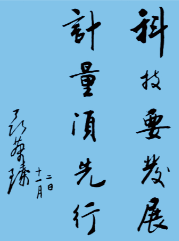 科技要發展
計量須先行
聂荣臻
十一月
二日